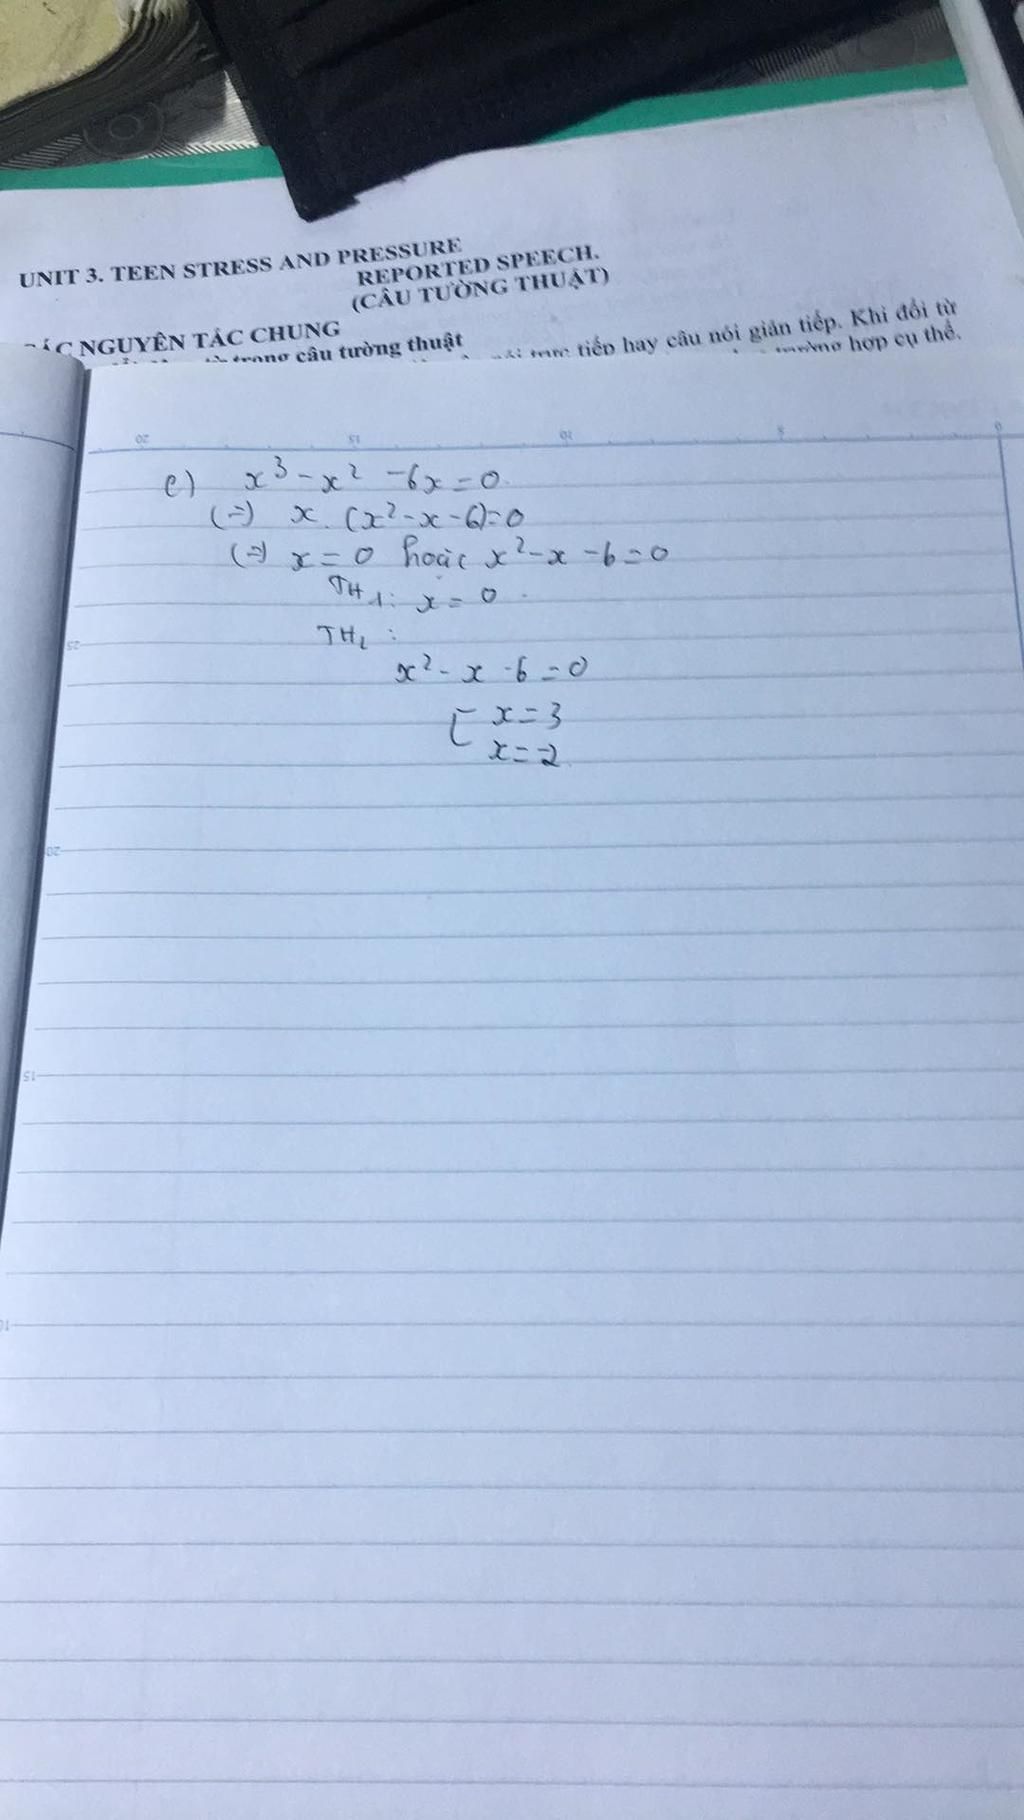 UNIT 3. TEEN STRESS AND PRESSURE
REPORTED SPEECH.
(CÂU TƯỜNG THUẬT)
NGUYÊN TẮC CHUNG
trong câu tường thuật
tiếp hay câu nói gián tiếp. Khi đổi từ
hợp cụ thể.
20 15 10 5 0
e) x³ - x² - 6x = 0.
(=) x. (x² - x - 6) = 0
(=) x = 0 hoặc x² - x - 6 = 0
TH1: x = 0.
TH2:
25
x² - x - 6 = 0
[ x = 3
x = -2
20
15
10